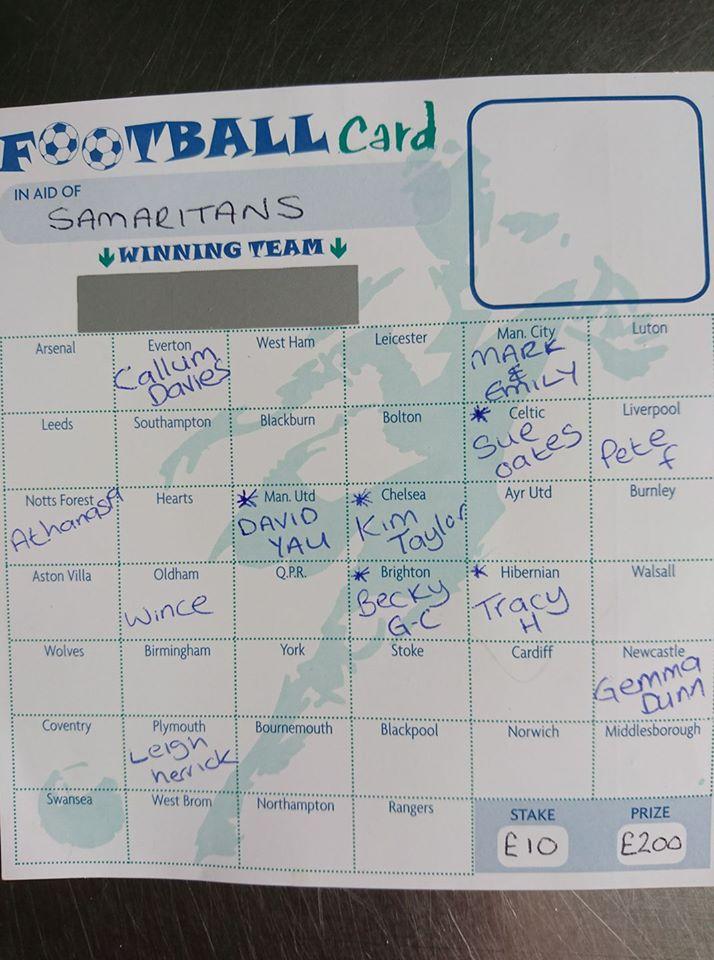 FOOTBALL Card
IN AID OF
SAMARITANS
WINNING TEAM
Arsenal
Everton
Callum
Davies
West Ham
Leicester
Man. City
MARK
&
EMILY
Luton
Leeds
Southampton
Blackburn
Bolton
* Celtic
Sue
Oates
Liverpool
Pete
F
Notts Forest
Athanasia
Hearts
* Man. Utd
DAVID
YAU
* Chelsea
Kim
Taylor
Ayr Utd
Burnley
Aston Villa
Oldham
Wince
Q.P.R.
* Brighton
Becky
G-C
* Hibernian
Tracy
H
Walsall
Wolves
Birmingham
York
Stoke
Cardiff
Newcastle
Gemma
Dunn
Coventry
Plymouth
Leigh
herrick
Bournemouth
Blackpool
Norwich
Middlesborough
Swansea
West Brom
Northampton
Rangers
STAKE
£10
PRIZE
£200